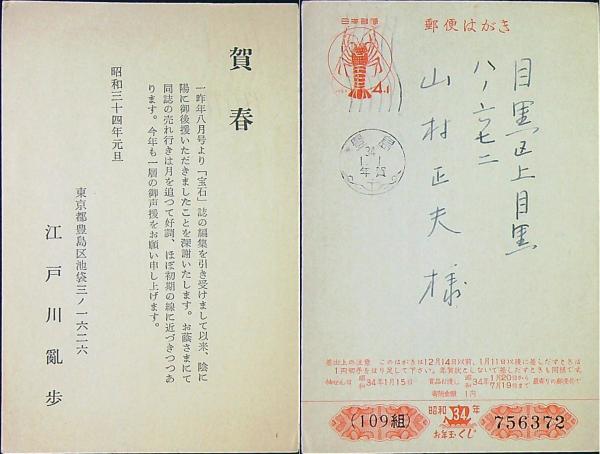 賀春
一昨年八月号より「宝石」誌の編集を引き受けまして以来、陰に
陽に御後援いただきましたことを深謝いたします。お蔭さまにて
同誌の売れ行きは月を追つて好調、ほぼ初期の線に近づきつつあ
ります。今年も一層の御声援をお願い申し上げます。
昭和三十四年元旦
東京都豊島区池袋三ノ一六二六
江戸川亂歩
日本郵便
4+1
郵便はがき
目黒区上目黒
八ノ六七二
山村正夫様
豊島
34
1.1
年賀
差出上の注意 このはがきは12月14日以前、1月11日以後に差しだすときは
1円切手をはり足して下さい。年賀状としないで差しだすときも同様です。
抽せん日 昭和34年1月15日 賞品お渡し 昭和34年 1月20日から 7月19日まで 最寄りの郵便局で
寄附金額 1円
昭和34年
お年玉くじ
(109組)
756372